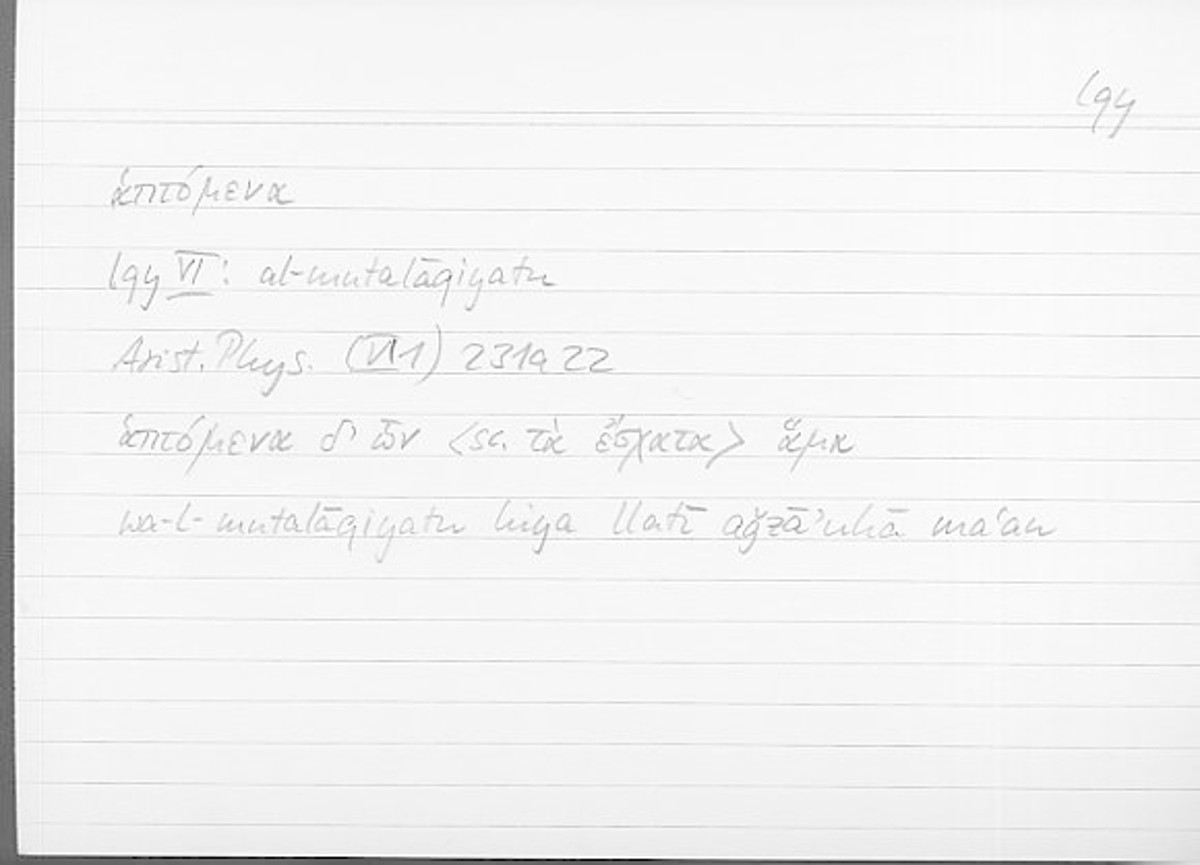 lqy
ἁπτόμενα
lqy VI: al-mutalāqiyatu
Arist. Phys. (VI 1) 231a 22
ἁπτόμενα δ' ὧν <sc. τὰ ἔσχατα> ἅμα
wa-l-mutalāqiyatu hiya llatī aǧzāʾuhā maʿan